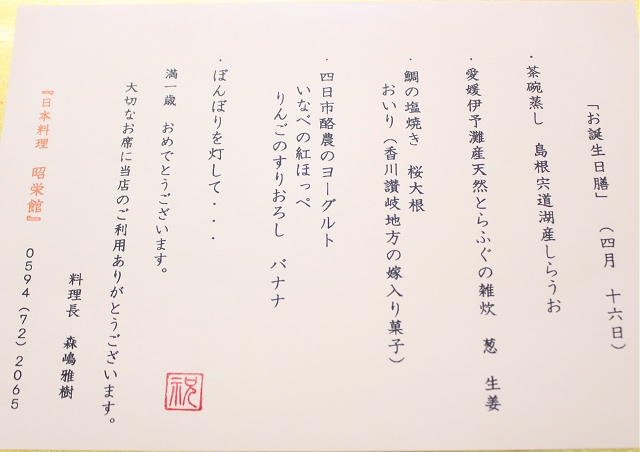 「お誕生日膳」　（四月　十六日）
・茶碗蒸し　島根宍道湖産しらうお
・愛媛伊予灘産天然とらふぐの雑炊　葱　生姜
・鯛の塩焼き　桜大根
おいり（香川讃岐地方の嫁入り菓子）
・四日市酪農のヨーグルト
いなべの紅ほっぺ
りんごのすりおろし　バナナ
・ぼんぼりを灯して・・・
満一歳　おめでとうございます。
大切なお席に当店のご利用ありがとうございます。
料理長　森嶋雅樹
『日本料理　昭栄館』
0594（72）2065
祝